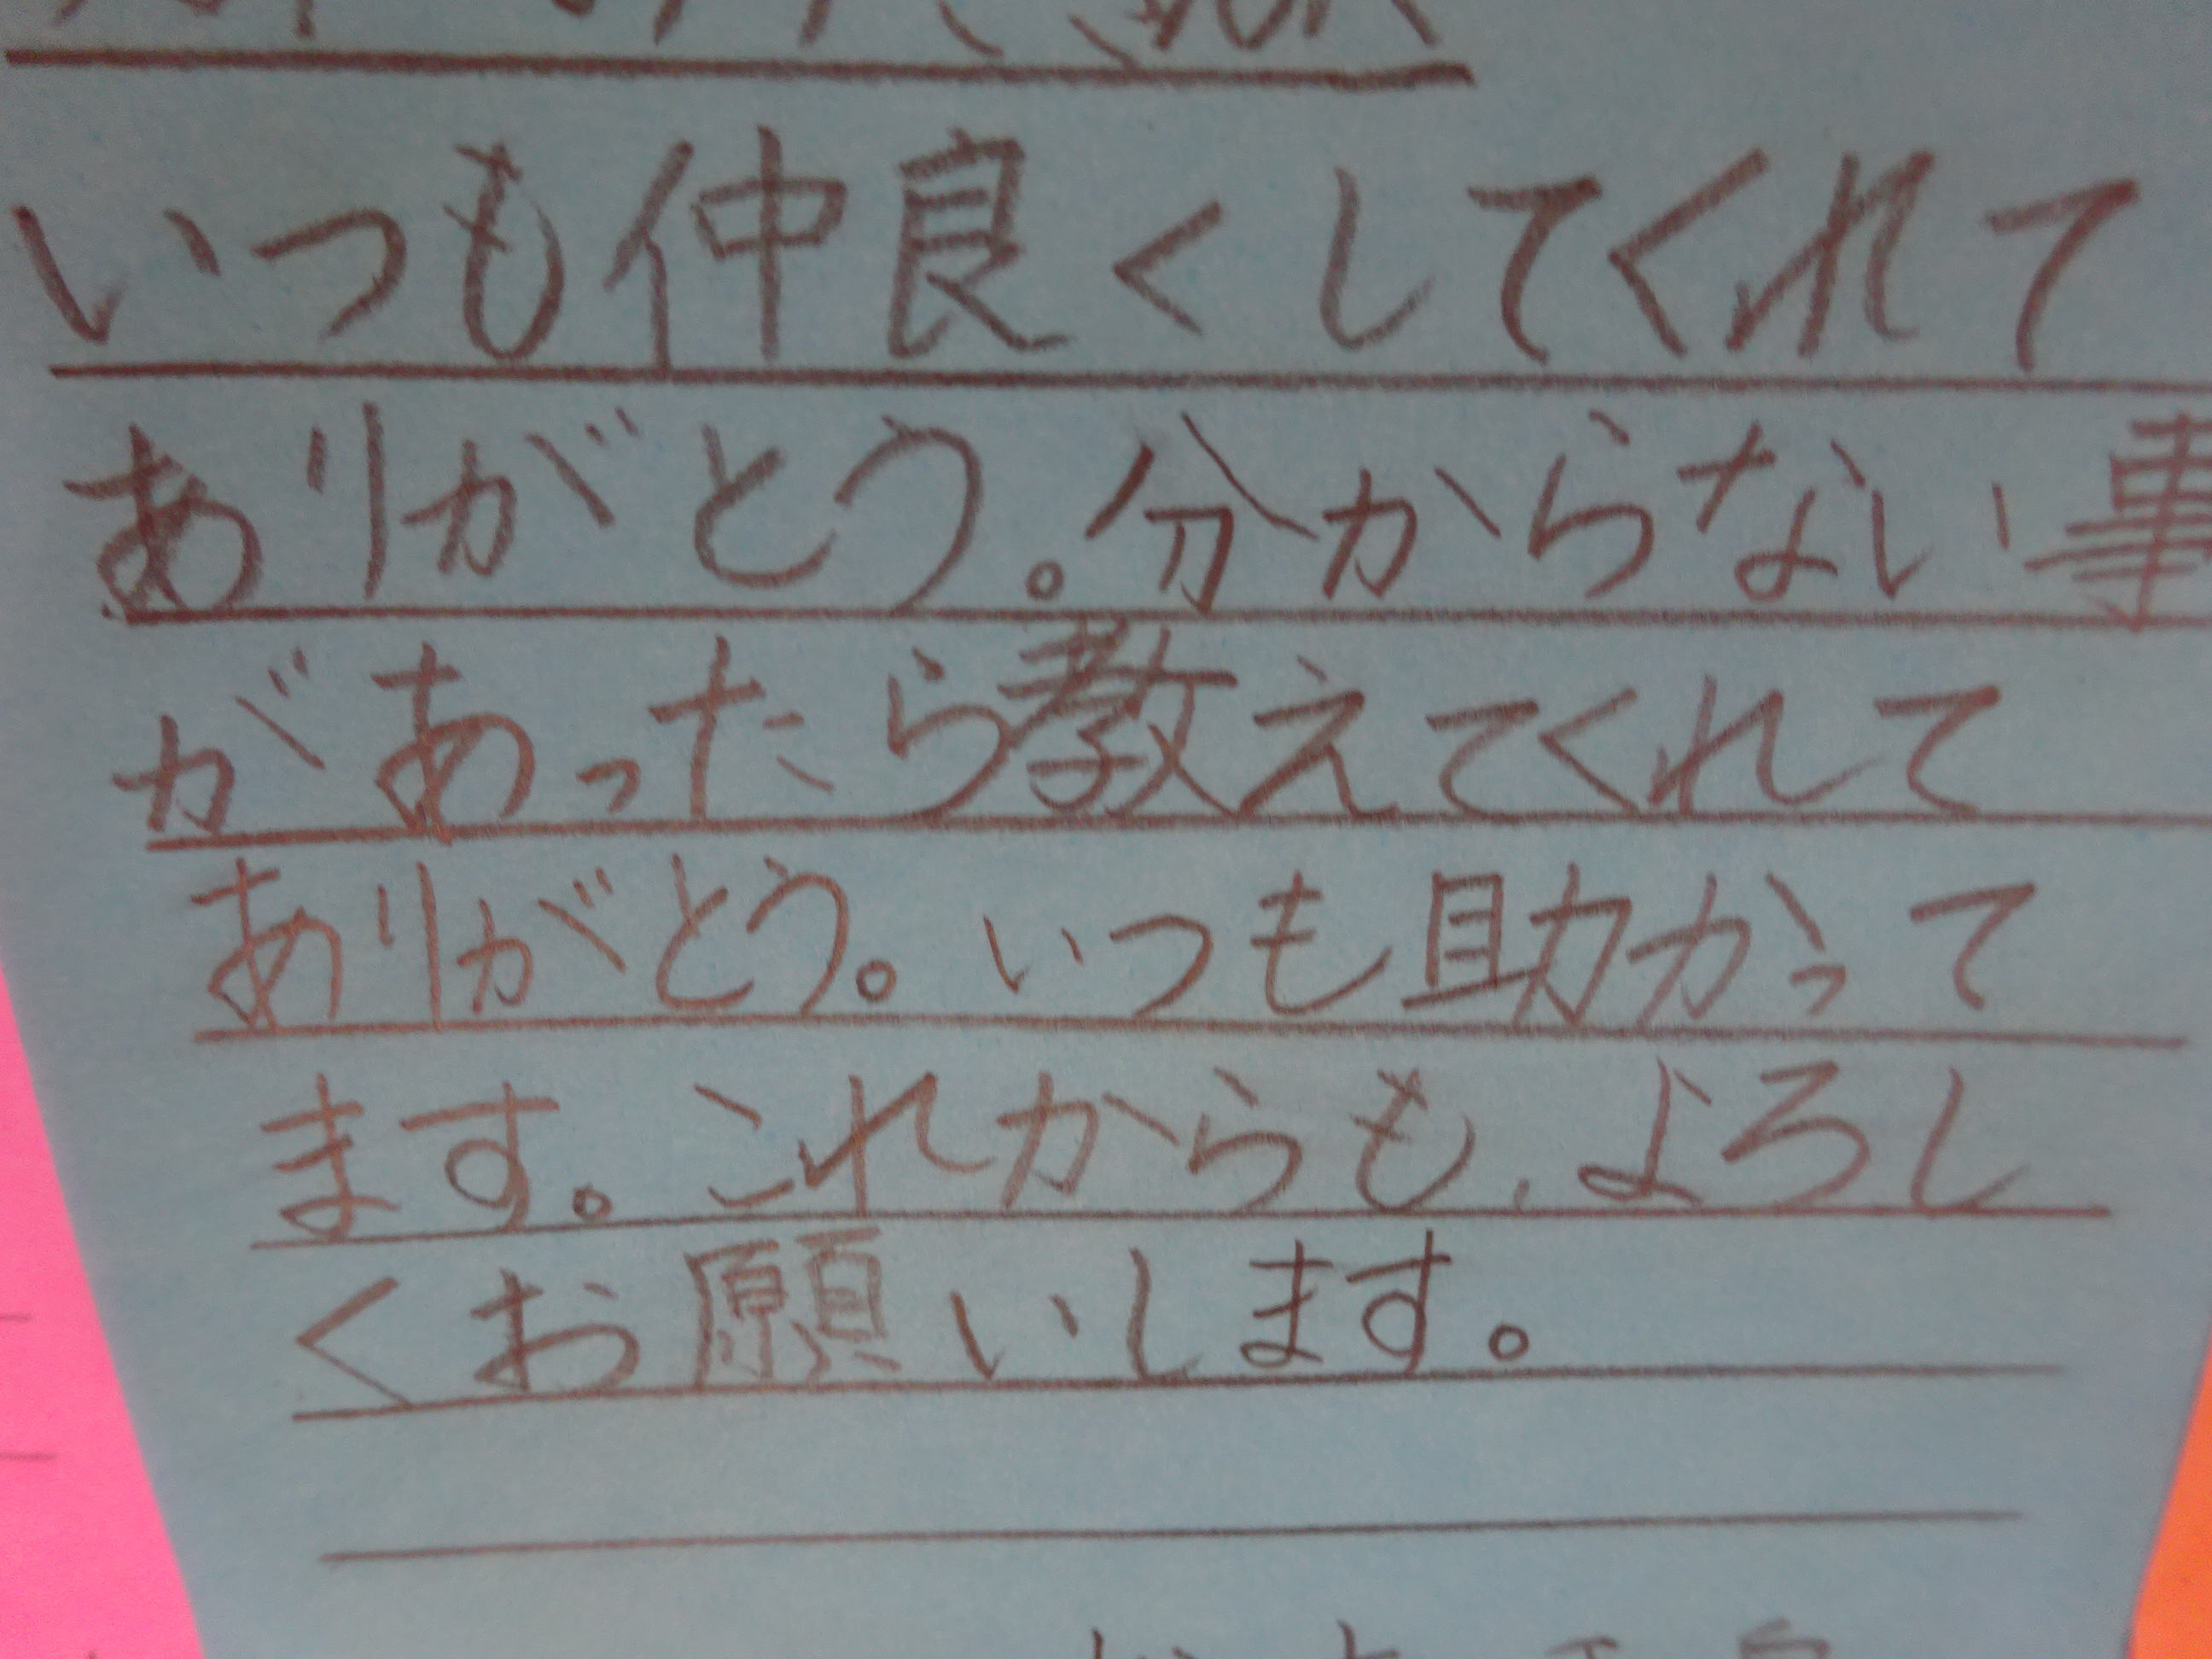 いつも仲良くしてくれて
ありがとう。分からない事
があったら教えてくれて
ありがとう。いつも助かって
ます。これからも、よろし
くお願いします。